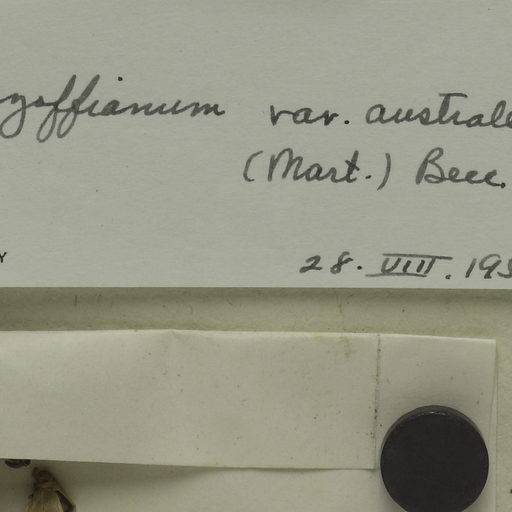 yzoffianum var. australe
(Mart.) Becc.
Y
28. VIII. 195